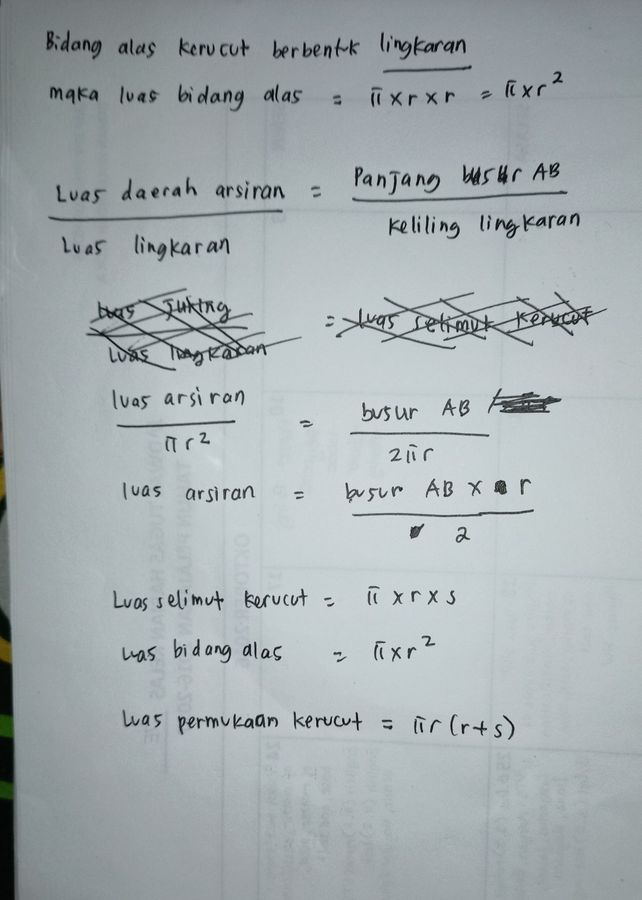 Bidang alas kerucut berbentk lingkaran
maka luas bidang alas = π x r x r = π x r²
Luas daerah arsiran / Luas lingkaran = Panjang busur AB / Keliling lingkaran
luas arsiran / πr² = busur AB / 2πr
luas arsiran = busur AB x r / 2
Luas selimut kerucut = π x r x s
luas bidang alas = π x r²
luas permukaan kerucut = πr (r+s)